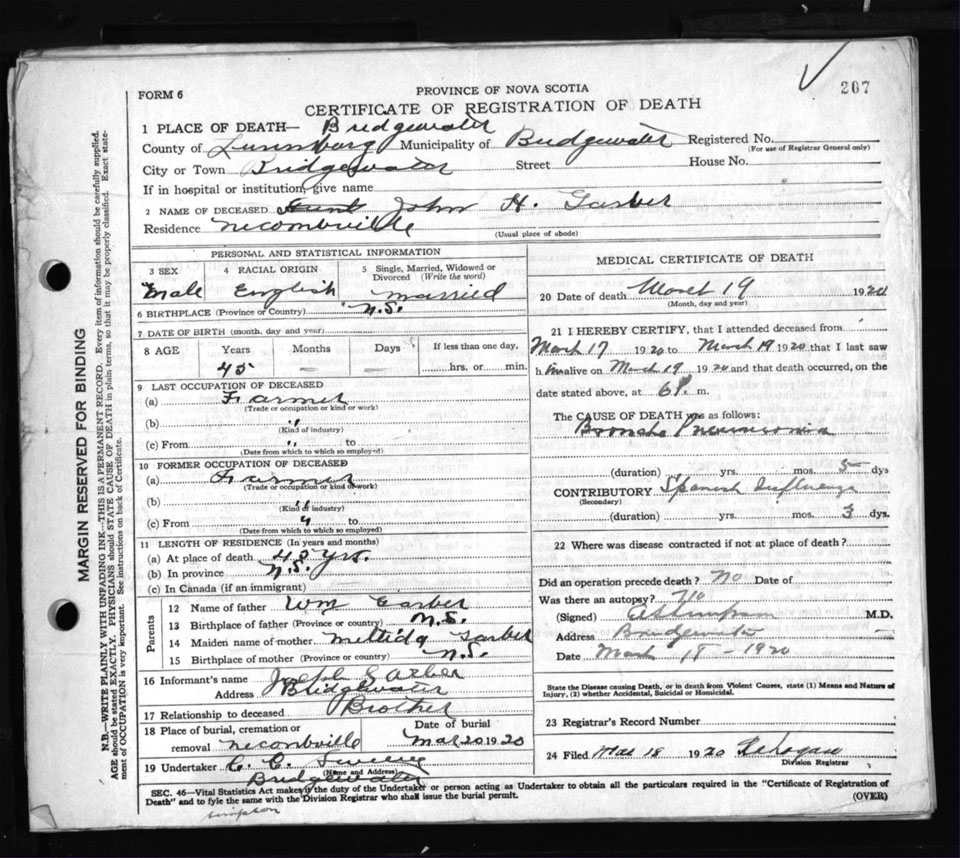 207
FORM 6
PROVINCE OF NOVA SCOTIA
CERTIFICATE OF REGISTRATION OF DEATH
1 PLACE OF DEATH— Bridgewater
County of Lunenburg Municipality of Bridgewater Registered No.
(For use of Registrar General only)
City or Town Bridgewater Street House No.
If in hospital or institution, give name
2 NAME OF DECEASED John H. Garber
Residence
(Usual place of abode)
PERSONAL AND STATISTICAL INFORMATION
3 SEX 4 RACIAL ORIGIN 5 Single, Married, Widowed or Divorced (Write the word)
Male English Married
6 BIRTHPLACE (Province or Country) N.S.
7 DATE OF BIRTH (month, day and year)
8 AGE Years Months Days If less than one day,
45 — — hrs. or min.
9 LAST OCCUPATION OF DECEASED
(a) Farmer
(Trade or occupation or kind or work)
(b) "
(Kind of industry)
(c) From " to
(Date from which to which so employed)
10 FORMER OCCUPATION OF DECEASED
(a) Farmer
(Trade or occupation or kind of work)
(b) "
(Kind of industry)
(c) From " to
(Date from which to which so employed)
11 LENGTH OF RESIDENCE (In years and months)
(a) At place of death 45 yrs.
(b) In province N.S.
(c) In Canada (if an immigrant)
Parents
12 Name of father Wm Garber
13 Birthplace of father (Province or country) N.S.
14 Maiden name of mother Garber
15 Birthplace of mother (Province or country) N.S.
16 Informant's name Joseph Garber
Address Bridgewater
17 Relationship to deceased Brother
18 Place of burial, cremation or removal Date of burial
Mar 20 1920
19 Undertaker C. C.
(Name and Address)
Bridgewater
MEDICAL CERTIFICATE OF DEATH
20 Date of death 19 1920
(Month, day and year)
21 I HEREBY CERTIFY, that I attended deceased from
March 17 1920 to March 19 1920 that I last saw
h im alive on March 19 1920 and that death occurred, on the
date stated above, at 6 P. m.
The CAUSE OF DEATH was as follows:
Broncho Pneumonia
(duration) yrs. mos. 5 dys
CONTRIBUTORY Spanish Influenza
(Secondary)
(duration) yrs. mos. 3 dys.
22 Where was disease contracted if not at place of death?
Did an operation precede death? No Date of
Was there an autopsy? No
(Signed) M.D.
Address Bridgewater
Date March 18 - 1920
State the Disease causing Death, or in death from Violent Causes, state (1) Means and Nature of
Injury, (2) whether Accidental, Suicidal or Homicidal.
23 Registrar's Record Number
24 Filed Mar 18 1920
Division Registrar
SEC. 46—Vital Statistics Act makes it the duty of the Undertaker or person acting as Undertaker to obtain all the particulars required in the "Certificate of Registration of
Death" and to fyle the same with the Division Registrar who shall issue the burial permit.
(OVER)
simpson
MARGIN RESERVED FOR BINDING
N.B.—WRITE PLAINLY WITH UNFADING INK—THIS IS A PERMANENT RECORD. Every item of information should be carefully supplied.
AGE should be stated EXACTLY. PHYSICIANS should STATE CAUSE OF DEATH in plain terms, so that it may be properly classified. Exact statement of OCCUPATION is very important. See instructions on back of Certificate.